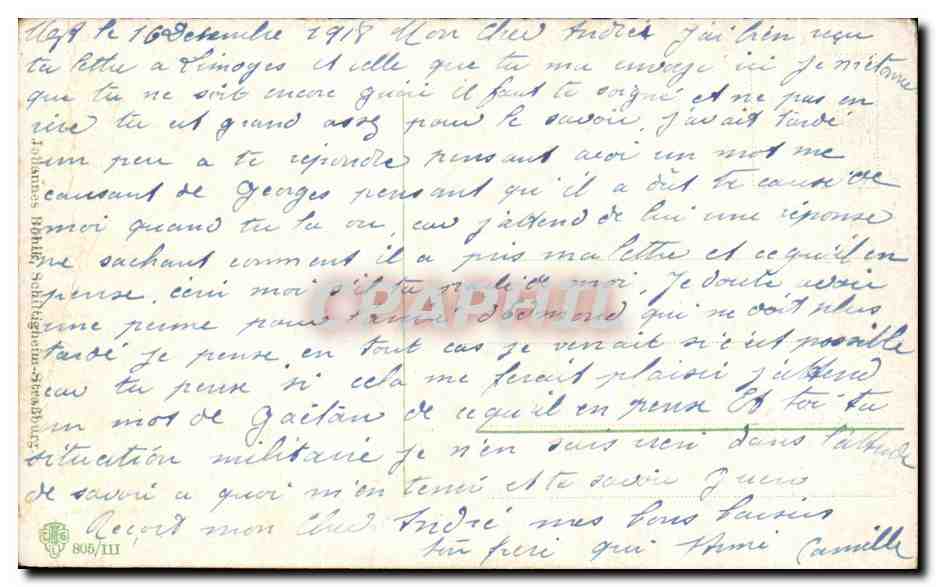 le 16 Desembre 1918 Mon Cher André j'ai bien reçu
ta lettre a Limoges et celle que tu ma envoye ici je m'étonne
que tu ne soit encore guéri il faut te soigné et ne pas en
rire tu est grand assez pour le savoir, j'avait tardé
un peu a te répondre pensant avoi un mot me
causant de Georges pensant qu'il a dût te causé de
moi quand tu la vu, car j'attend de lui une réponse
ne sachant comment il a pris ma lettre et cequ'il en
pense, moi s'il tu de moi, Je doute avoir
une perme pour qui ne doit plus
tardé je pense, en tout cas je venait si c'est possible
car tu pense si cela me ferait plaisir j'attend
un mot de Gaëtan de cequ'il en pense Et toi ta
situation militaire je n'en sais rien dans l'attende
de savoir a quoi m'en tenir et te savoir
Reçoit mon Cher André mes bons baisers
ton frere qui t'aime Camille
Johannes Schiltigheim-Straßburg
805/III
CPAPHIL